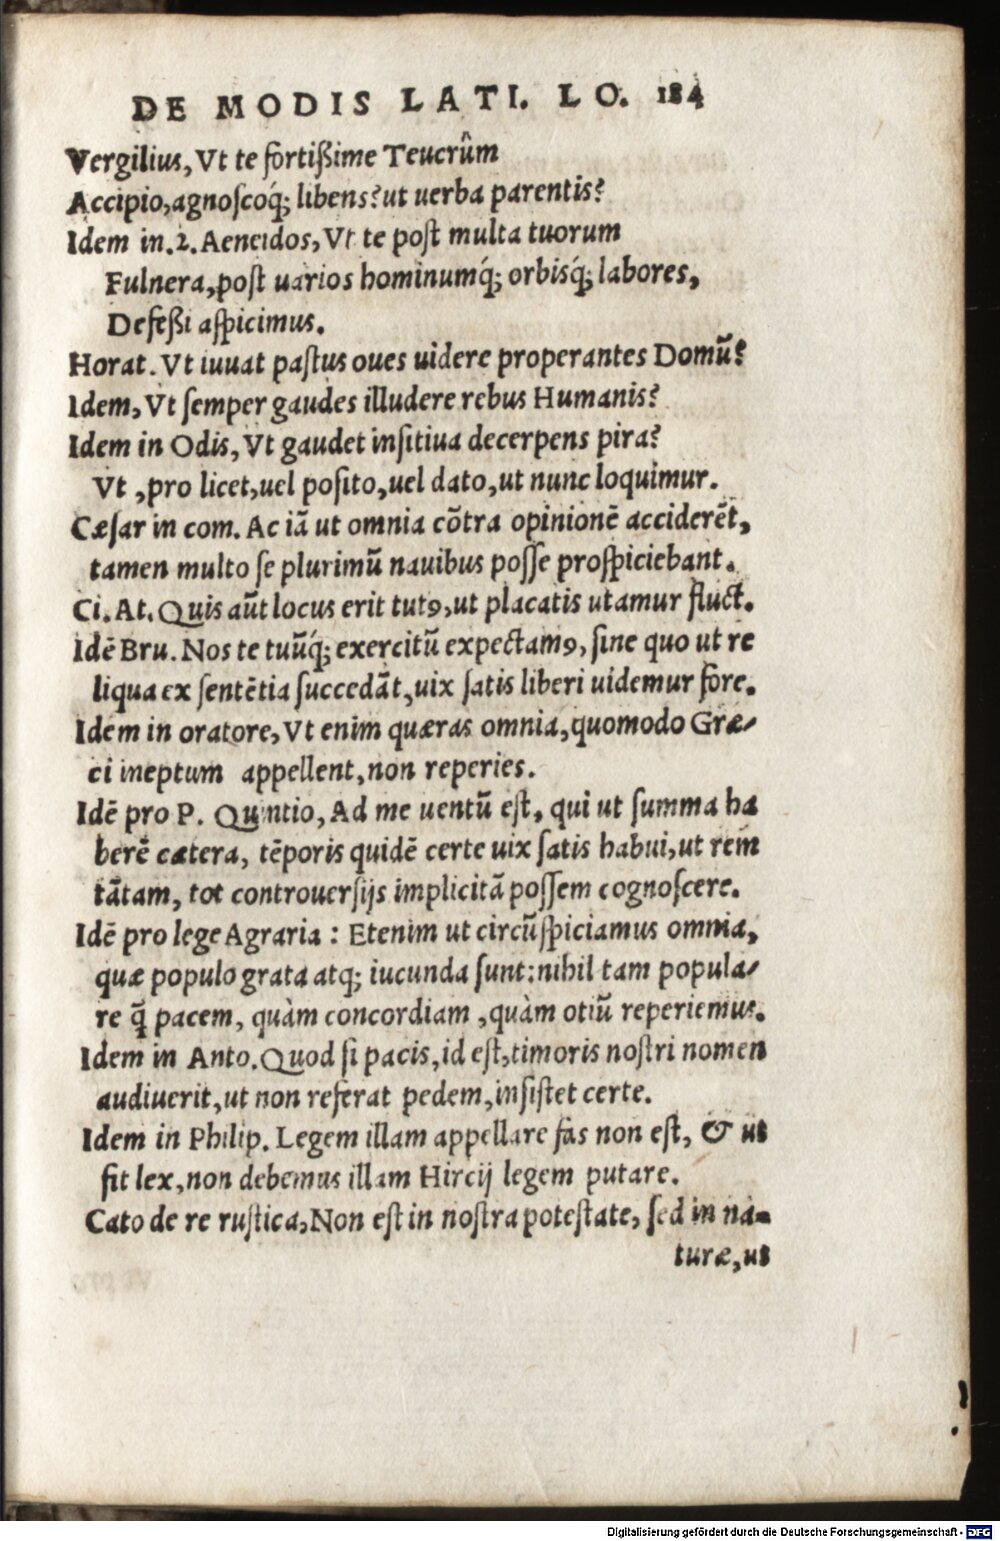 DE MODIS LATI. LO. 184
Vergilius, Vt te fortißime Teucrûm
Accipio, agnoscoq́; libens? ut uerba parentis?
Idem in .2. Aeneidos, Vt te post multa tuorum
Fulnera, post uarios hominumq́; orbisq́; labores,
Defeßi aspicimus.
Horat. Vt iuuat pastus oues uidere properantes Domũ?
Idem, Vt semper gaudes illudere rebus Humanis?
Idem in Odis, Vt gaudet insitiua decerpens pira?
Vt, pro licet, uel posito, uel dato, ut nunc loquimur.
Cæsar in com. Ac iã ut omnia cõtra opinionē acciderēt,
tamen multo se plurimũ nauibus posse prospiciebant.
Ci. At. Quis aũt locus erit tutꝰ, ut placatis utamur fluct.
Idē Bru. Nos te tuũq́; exercitũ expectamꝰ, sine quo ut re
liqua ex sentētia succedãt, uix satis liberi uidemur fore.
Idem in oratore, Vt enim quæras omnia, quomodo Græ-
ci ineptum appellent, non reperies.
Idē pro P. Quintio, Ad me uentũ est, qui ut summa ha
berē cætera, tēporis quidē certe uix satis habui, ut rem
tãtam, tot controuersijs implicitã possem cognoscere.
Idē pro lege Agraria : Etenim ut circũspiciamus omnia,
quæ populo grata atq; iucunda sunt: nihil tam popula-
re q̃ pacem, quàm concordiam, quàm otiũ reperiemus.
Idem in Anto. Quod si pacis, id est, timoris nostri nomen
audiuerit, ut non referat pedem, insistet certe.
Idem in Philip. Legem illam appellare fas non est, & ut
sit lex, non debemus illam Hircij legem putare.
Cato de re rustica, Non est in nostra potestate, sed in na-
turæ, ut
Digitalisierung gefördert durch die Deutsche Forschungsgemeinschaft - DFG